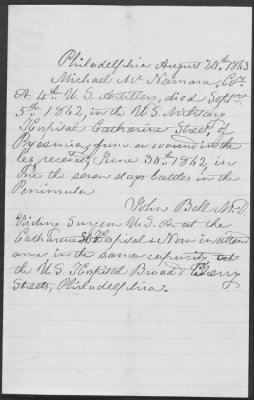 Philadelphia August 20th 1863
Michael Mc Namara, Co.
A. 4th U.S. Artillery, died Sept.
5th 1862, in the U.S. Military
Hospital Catharine Street, of
Pyaemia, from a wound in the
leg, received June 30th 1862, in
one the seven days battles in the
Peninsula
John Bell M.D
Visiting Surgeon U.S.A. at the
Catharine St Hospital & Now in attend
ance in the same capacity at
the U.S. Hospital Broad & Cherry
Streets, Philadelphia.